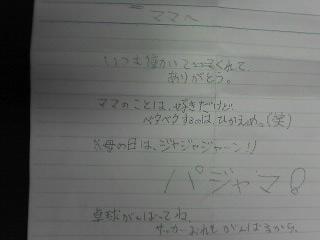 ママへ
いつも働いてくれて
ありがとう。
ママのことは、好きだけど
ベタベタするのは、ひかえめ。(笑)
母の日は、ジャジャジャーン!!
パジャマ!
卓球がんばってね。
サッカーおれもがんばるから。